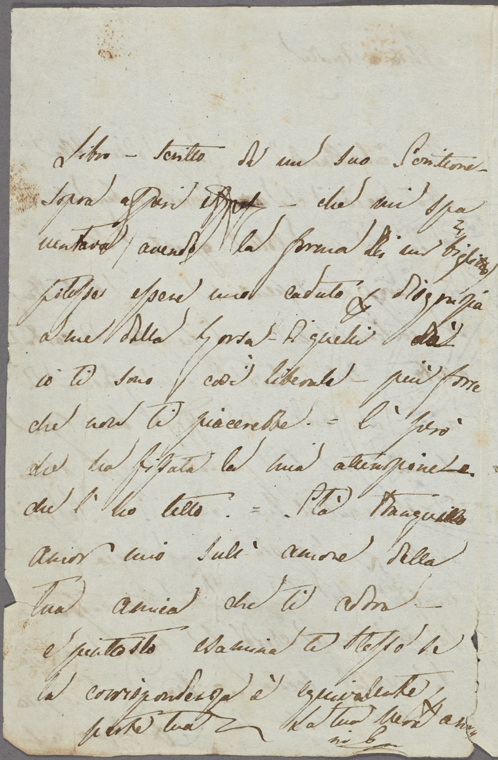 Libro – scritto da un suo Scrittore
sopra affari – che mi spa
ventava, avendo la forma di un biglietto
potesse essere uno caduto x disgrazia
a me dalla borsa – di quelli
io ti sono così liberale – più forse
che non ti piacerebbe. = E però
che ha fissata la mia attenzione – e
che l'ho letto. = Stà tranquillo
amor mio sull' amore della
tua amica che ti adora –
e piutosto esamina te stesso se
la corrispondenza è equivalente,
parte tua La tua